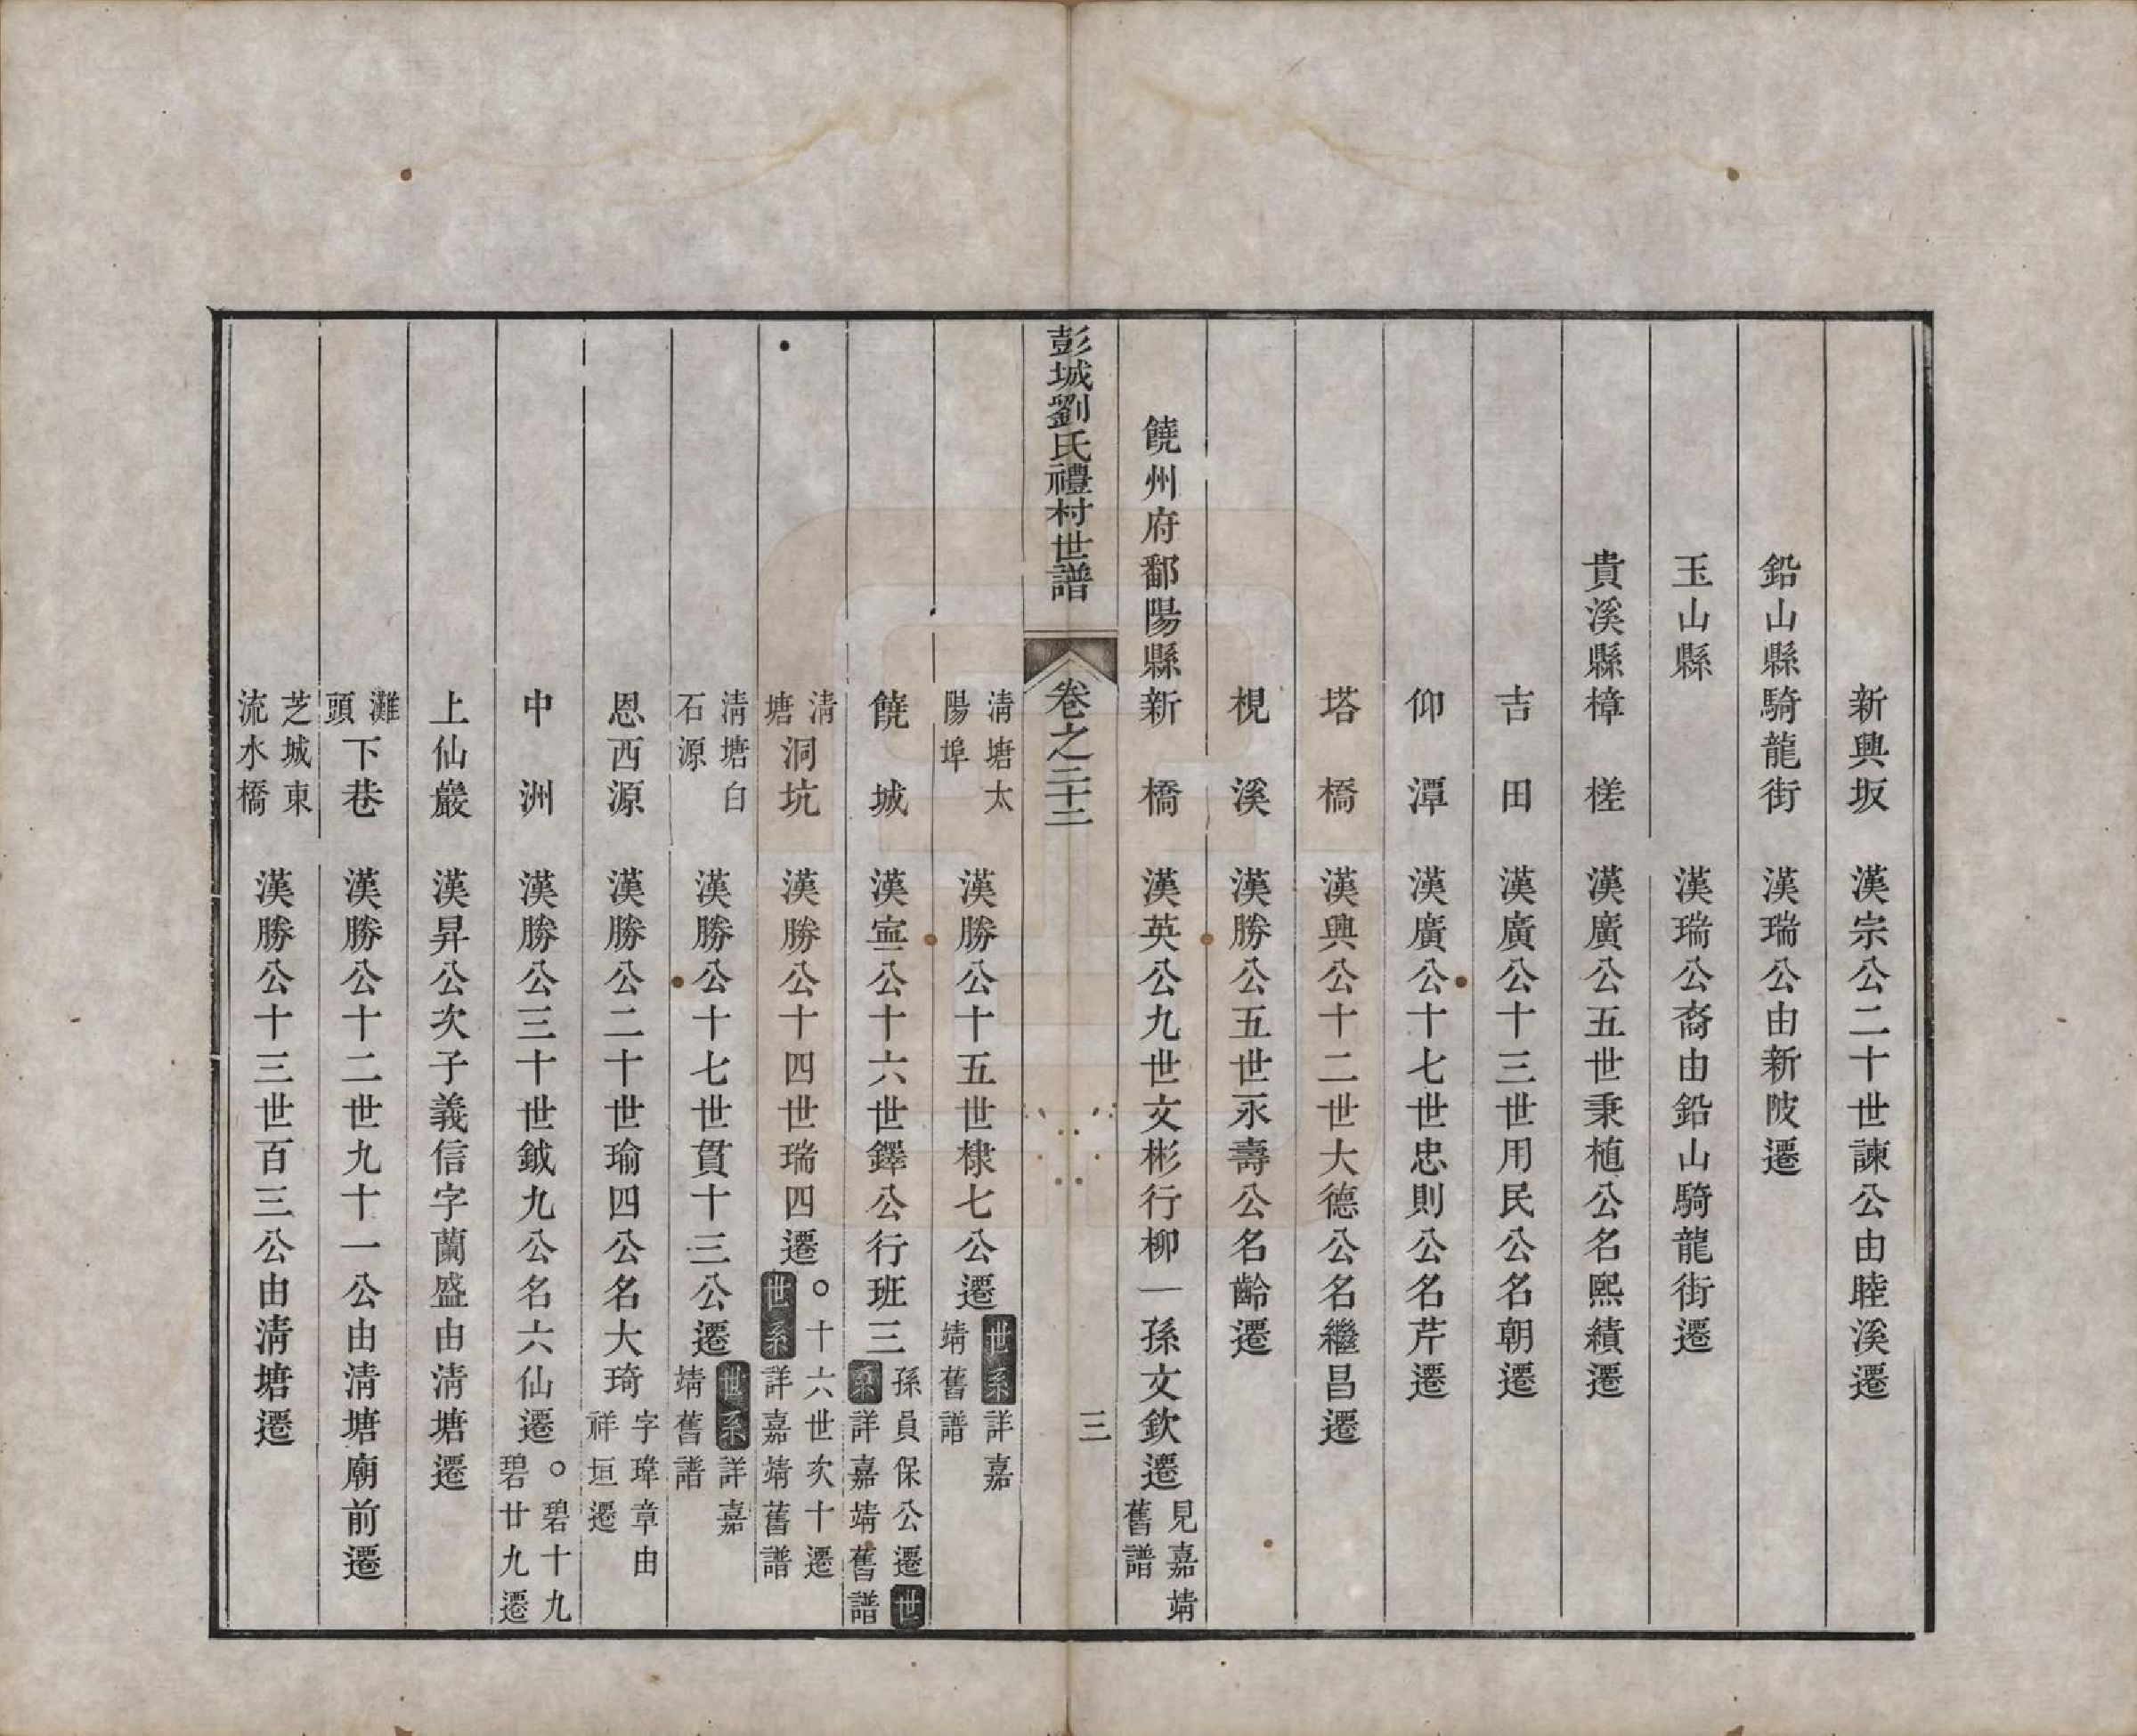 新興坂　漢宗公二十世諫公由睦溪遷
鉛山縣騎龍街　漢瑞公由新陂遷
玉山縣　漢瑞公裔由鉛山騎龍街遷
貴溪縣樟槎　漢廣公五世秉植公名熙績遷
吉田　漢廣公十三世用民公名朝遷
仰潭　漢廣公十七世忠則公名芹遷
塔橋　漢興公十二世大德公名繼昌遷
梘溪　漢勝公五世永壽公名齡遷
饒州府鄱陽縣新橋　漢英公九世文彬行柳一孫文欽遷見嘉靖舊譜
彭城劉氏禮村世譜　卷之二十二　三
清塘太陽埠　漢勝公十五世棣七公遷世系詳嘉靖舊譜
饒城　漢寍公十六世鐸公行班三孫員保公遷世系詳嘉靖舊譜
清塘洞坑　漢勝公十四世瑞四遷○十六世次十遷世系詳嘉靖舊譜
清塘白石源　漢勝公十七世貫十三公遷世系詳嘉靖舊譜
恩西源　漢勝公二十世瑜四公名大琦字瑋章由祥垣遷
中洲　漢勝公三十世鉞九公名六仙遷○碧十九碧廿九遷
上仙巖　漢昇公次子義信字蘭盛由清塘遷
灘頭下巷　漢勝公十二世九十一公由清塘廟前遷
芝城東流水橋　漢勝公十三世百三公由清塘遷